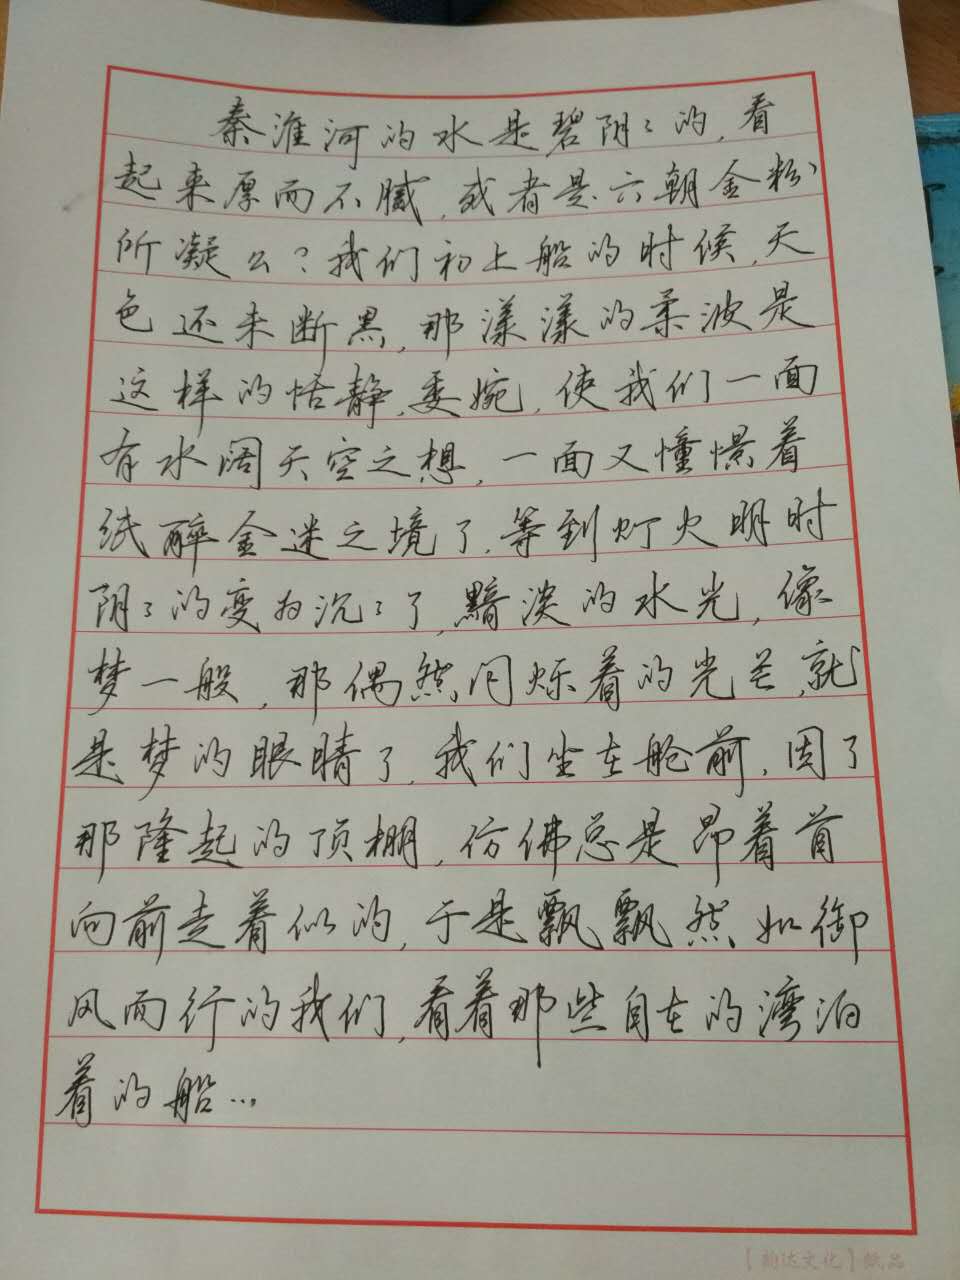 秦淮河的水是碧阴々的,看
起来厚而不腻,或者是六朝金粉
所凝么?我们初上船的时候,天
色还未断黑,那漾漾的柔波是
这样的恬静,委婉,使我们一面
有水阔天空之想,一面又憧憬着
纸醉金迷之境了,等到灯火明时
阴々的变为沉々了,黯淡的水光,像
梦一般,那偶然闪烁着的光芒,就
是梦的眼睛了,我们坐在舱前,因了
那隆起的顶棚,仿佛总是昂着首
向前走着似的,于是飘飘然如御
风而行的我们,看着那些自在的湾泊
着的船…
【韵达文化】纸品